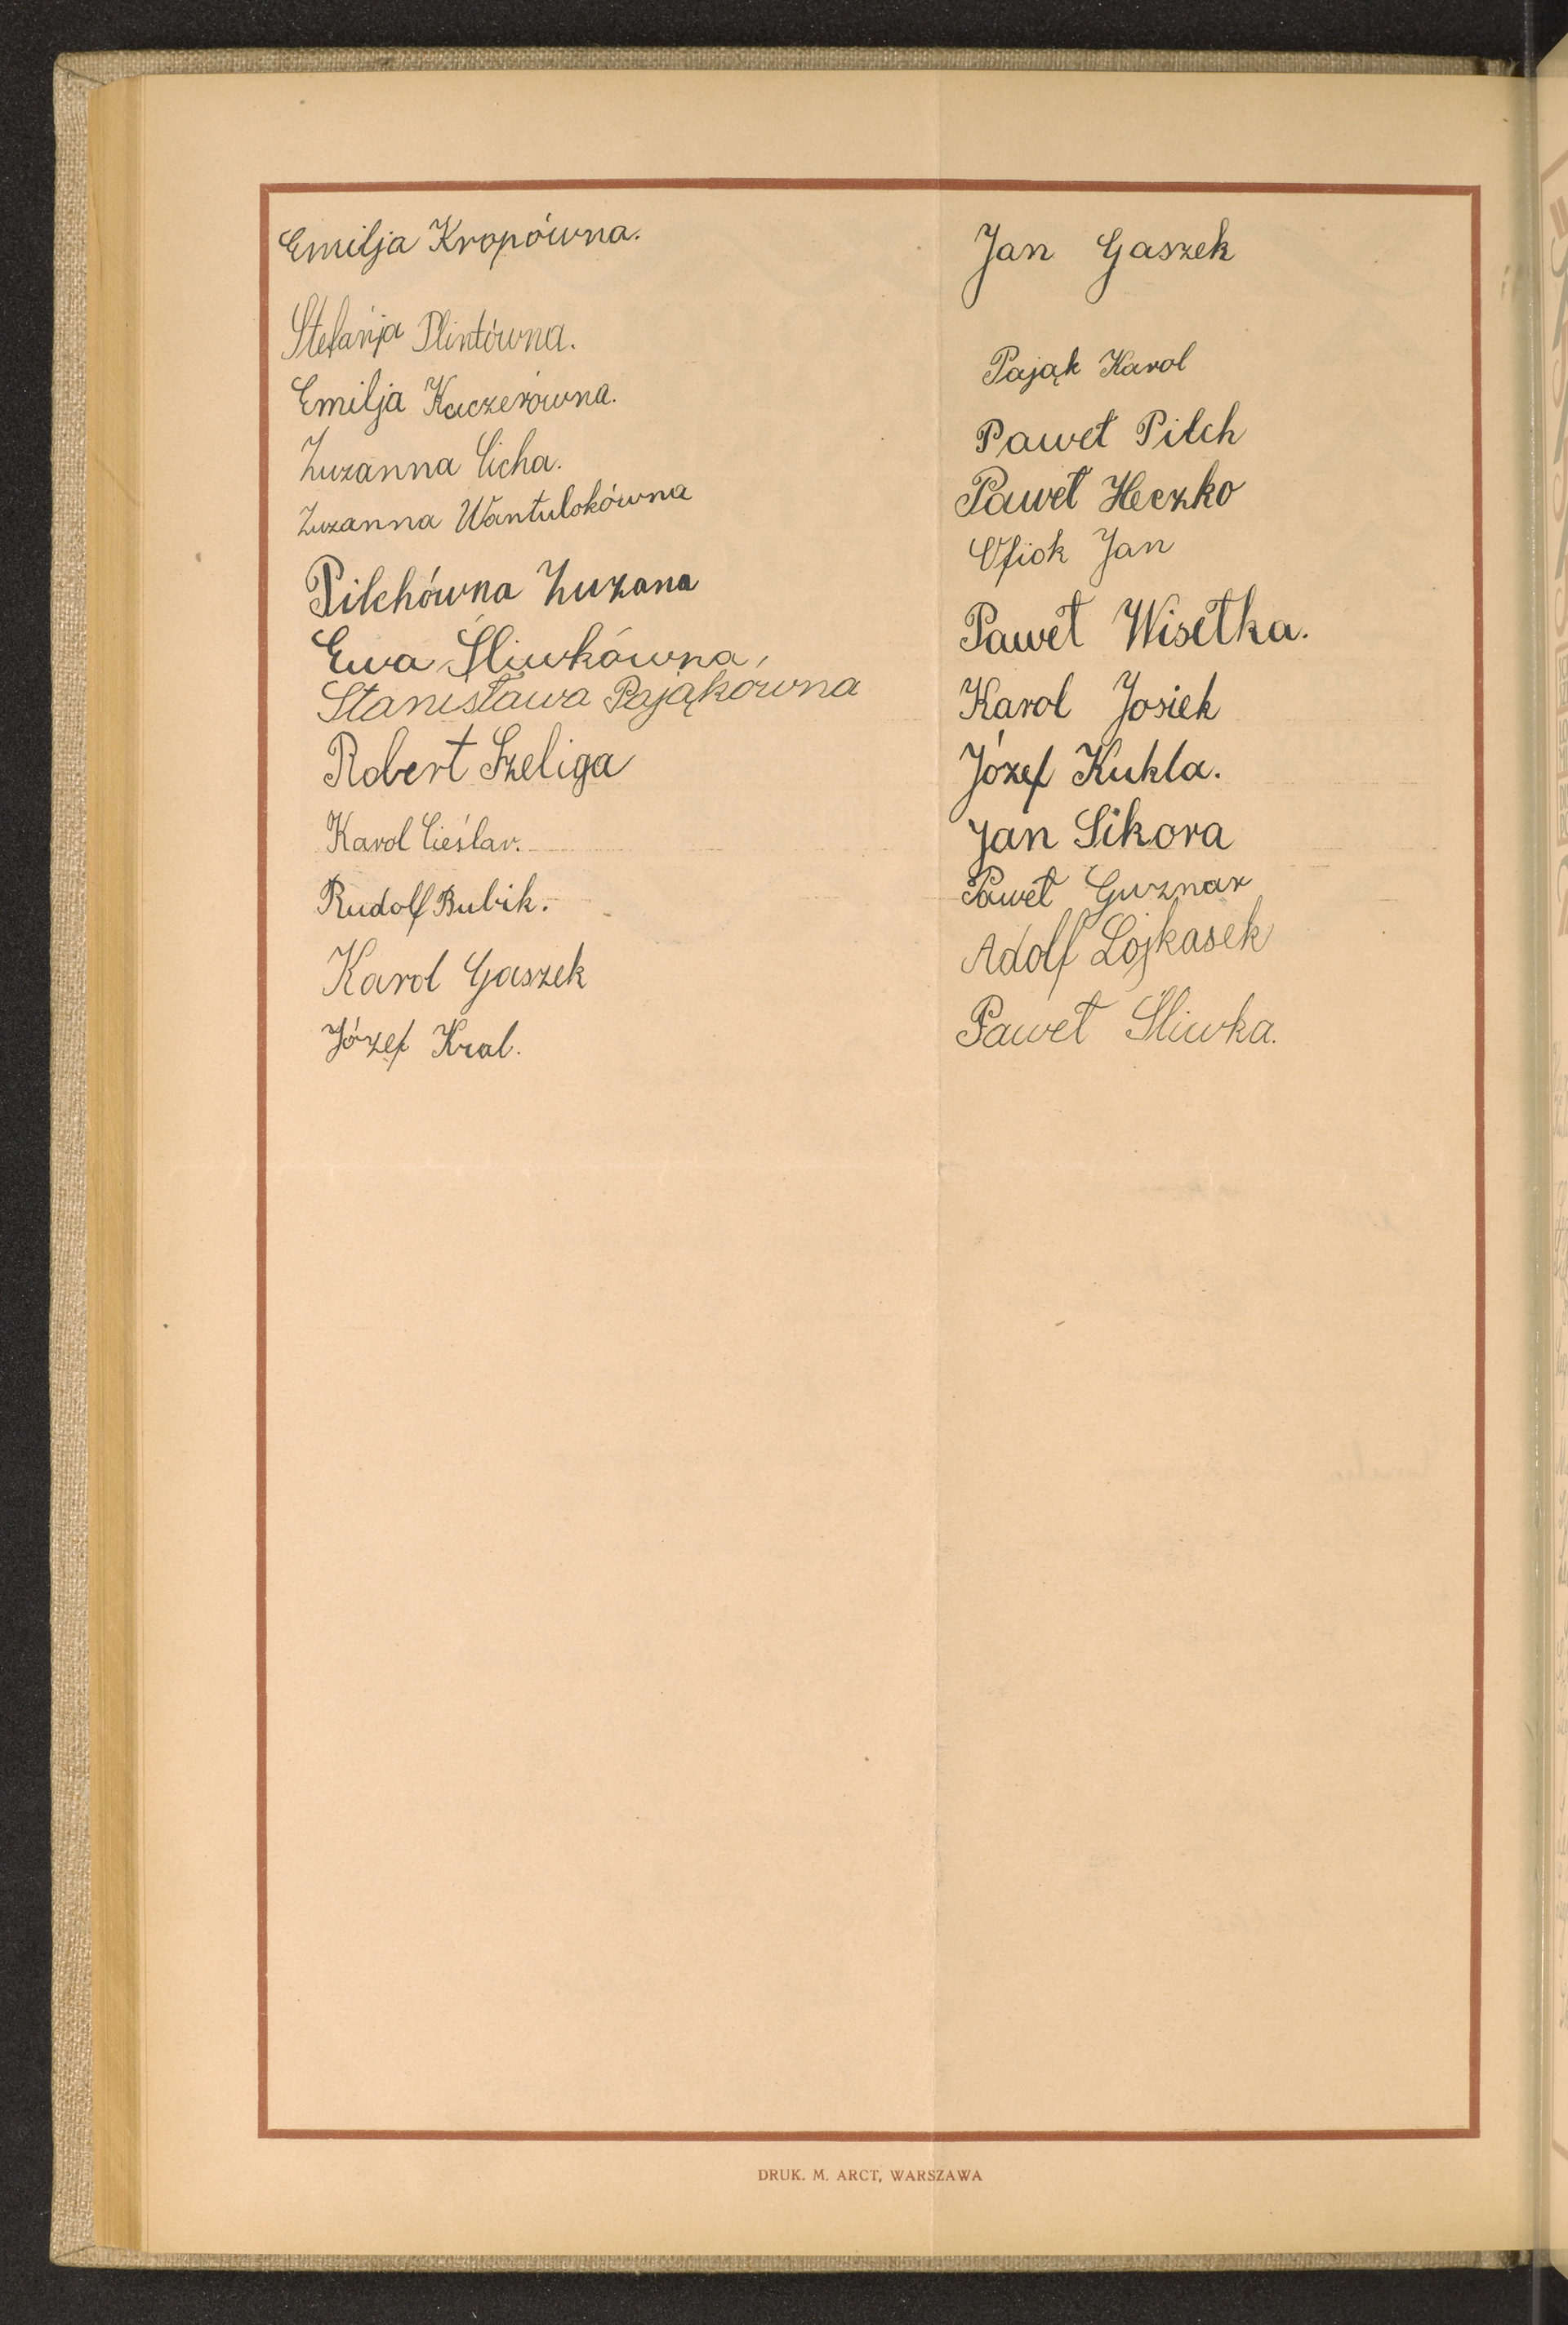 Emilja Kropówna.
Stefanja Plintówna.
Emilja Kaczerówna.
Zuzanna Cicha.
Zuzanna Wantulokówna
Pilchówna Zuzana
Ewa Śliwkówna,
Stanisława Pająkówna
Robert Szeliga
Karol Cieślar.
Rudolf Bubik.
Karol Gaszek
Józef Kral.
Jan Gaszek
Pająk Karol
Paweł Pilch
Paweł Heczko
Jan
Paweł Wisełka.
Karol Josiek
Józef Kukla.
Jan Sikora
Paweł Guznar
Adolf Lojkasek
Paweł Śliwka.
DRUK. M. ARCT, WARSZAWA